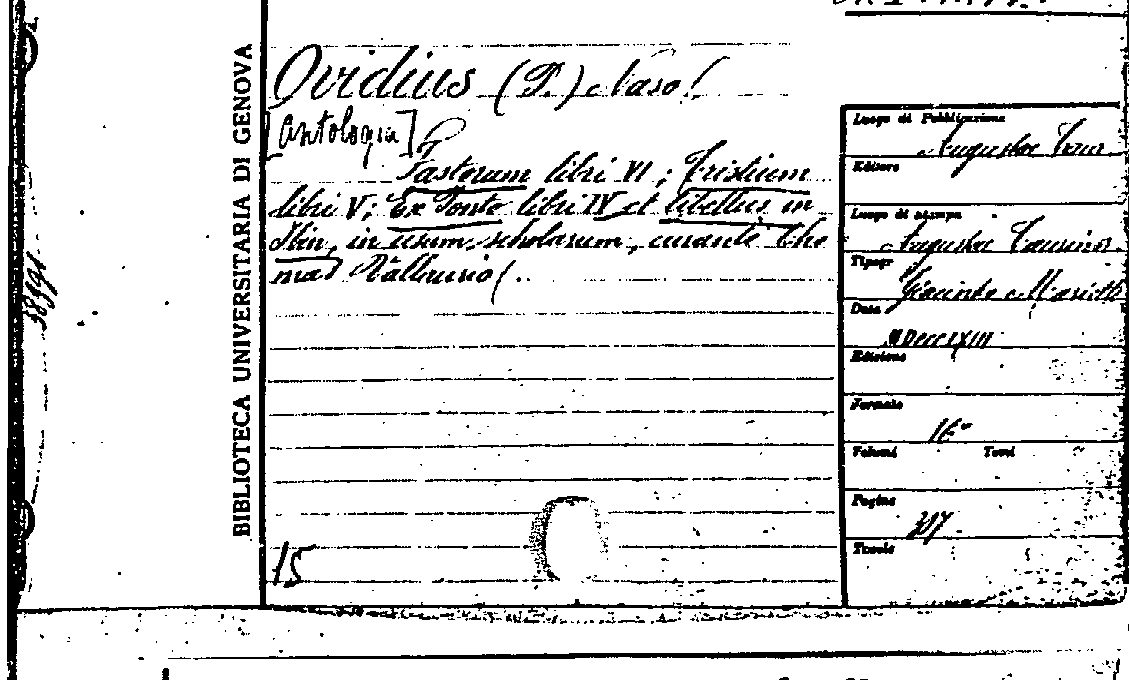 BIBLIOTECA UNIVERSITARIA DI GENOVA
Ovidius (P.) Naso
[Antologia]
Fastorum libri VI; Tristium
libri V; Ex Ponto libri IV et libellus in
Ibin, in usum scholarum, curante Tho
mas Vallaurio
15
Luogo di Pubblicazione
Augustae Taur
Editore
Luogo di stampa
Augustae Taurinor.
Tipogr
Giacinto Marietti
Data
MDCCCLXIII
Edizione
Formato
16°
Volumi Tomi
Pagine
317
Tavole